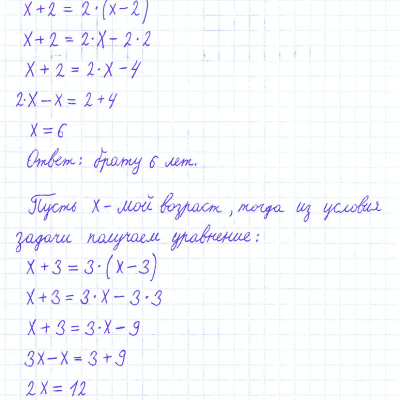 x+2 = 2·(x-2)
x+2 = 2·x-2·2
x+2 = 2·x-4
2·x-x = 2+4
x = 6
Ответ: брату 6 лет.
Пусть x - мой возраст, тогда из условия
задачи получаем уравнение:
x+3 = 3·(x-3)
x+3 = 3·x-3·3
x+3 = 3·x-9
3x-x = 3+9
2x = 12